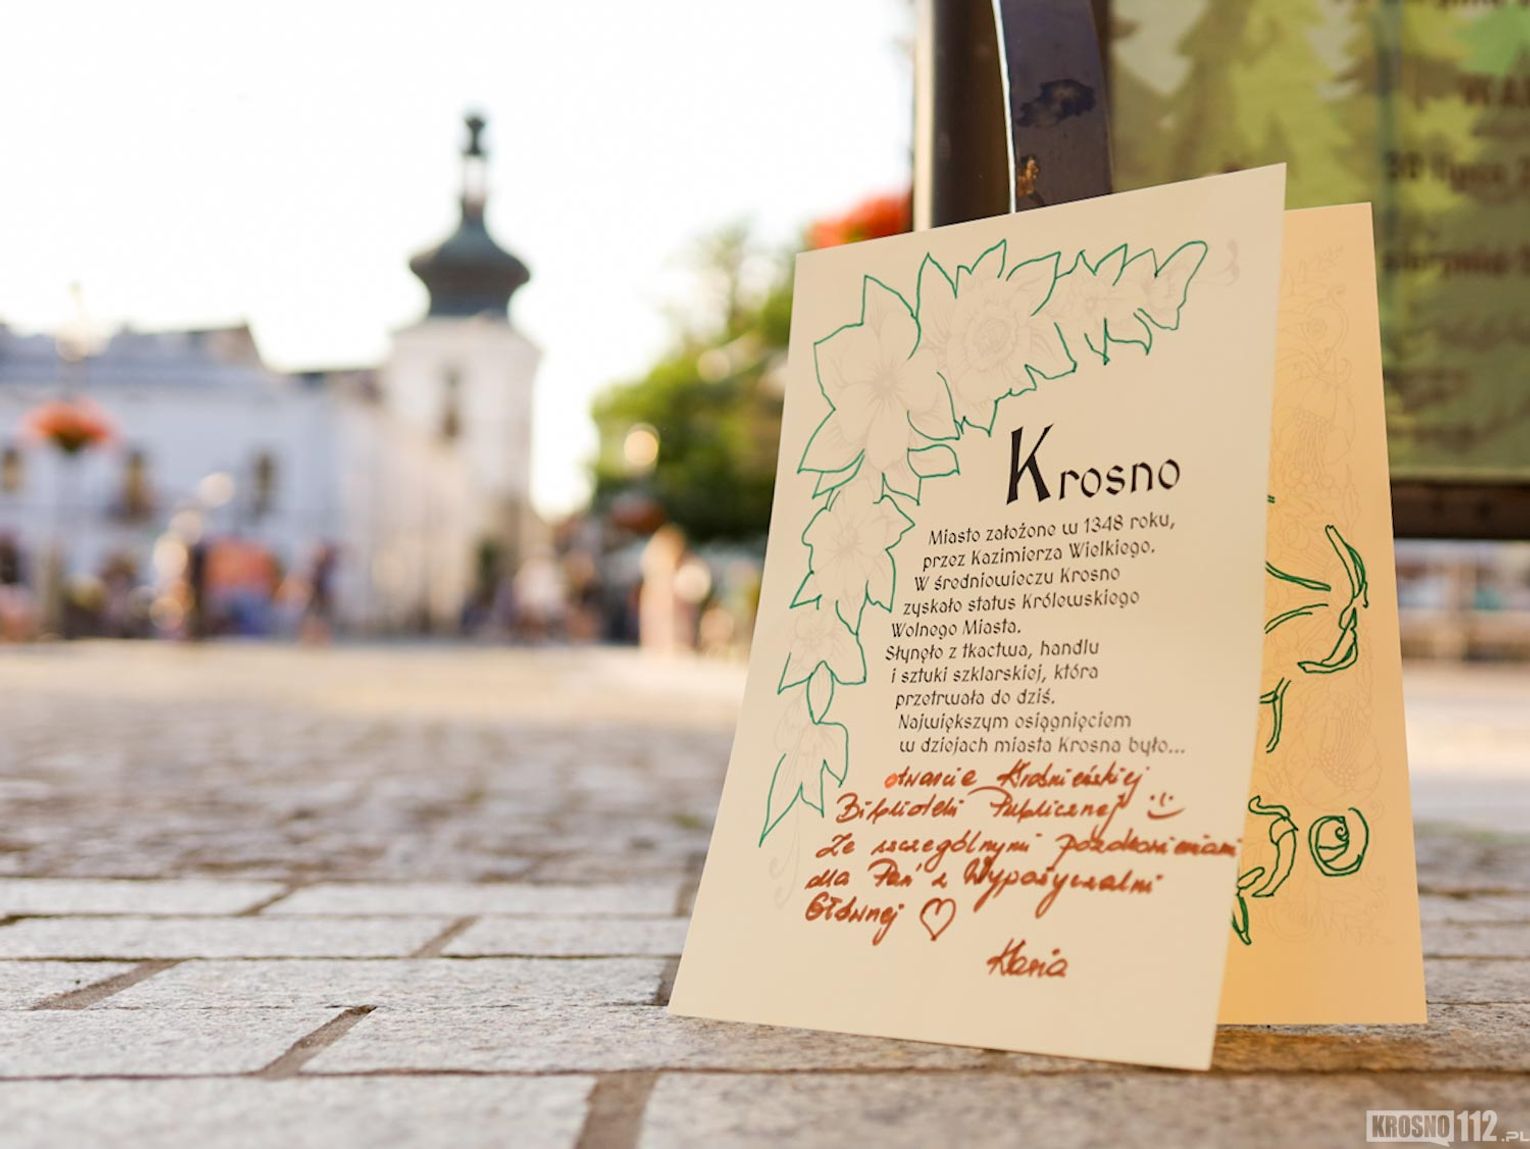 Krosno
Miasto założone w 1348 roku,
przez Kazimierza Wielkiego.
W średniowieczu Krosno
zyskało status Królewskiego
Wolnego Miasta.
Słynęło z tkactwa, handlu
i sztuki szklarskiej, która
przetrwała do dziś.
Największym osiągnięciem
w dziejach miasta Krosna było...
otwarcie Krośnieńskiej
Biblioteki Publicznej
Ze szczególnymi pozdrowieniami
dla Pań z Wypożyczalni
Głównej ♡
Kasia
KROSNO112.PL